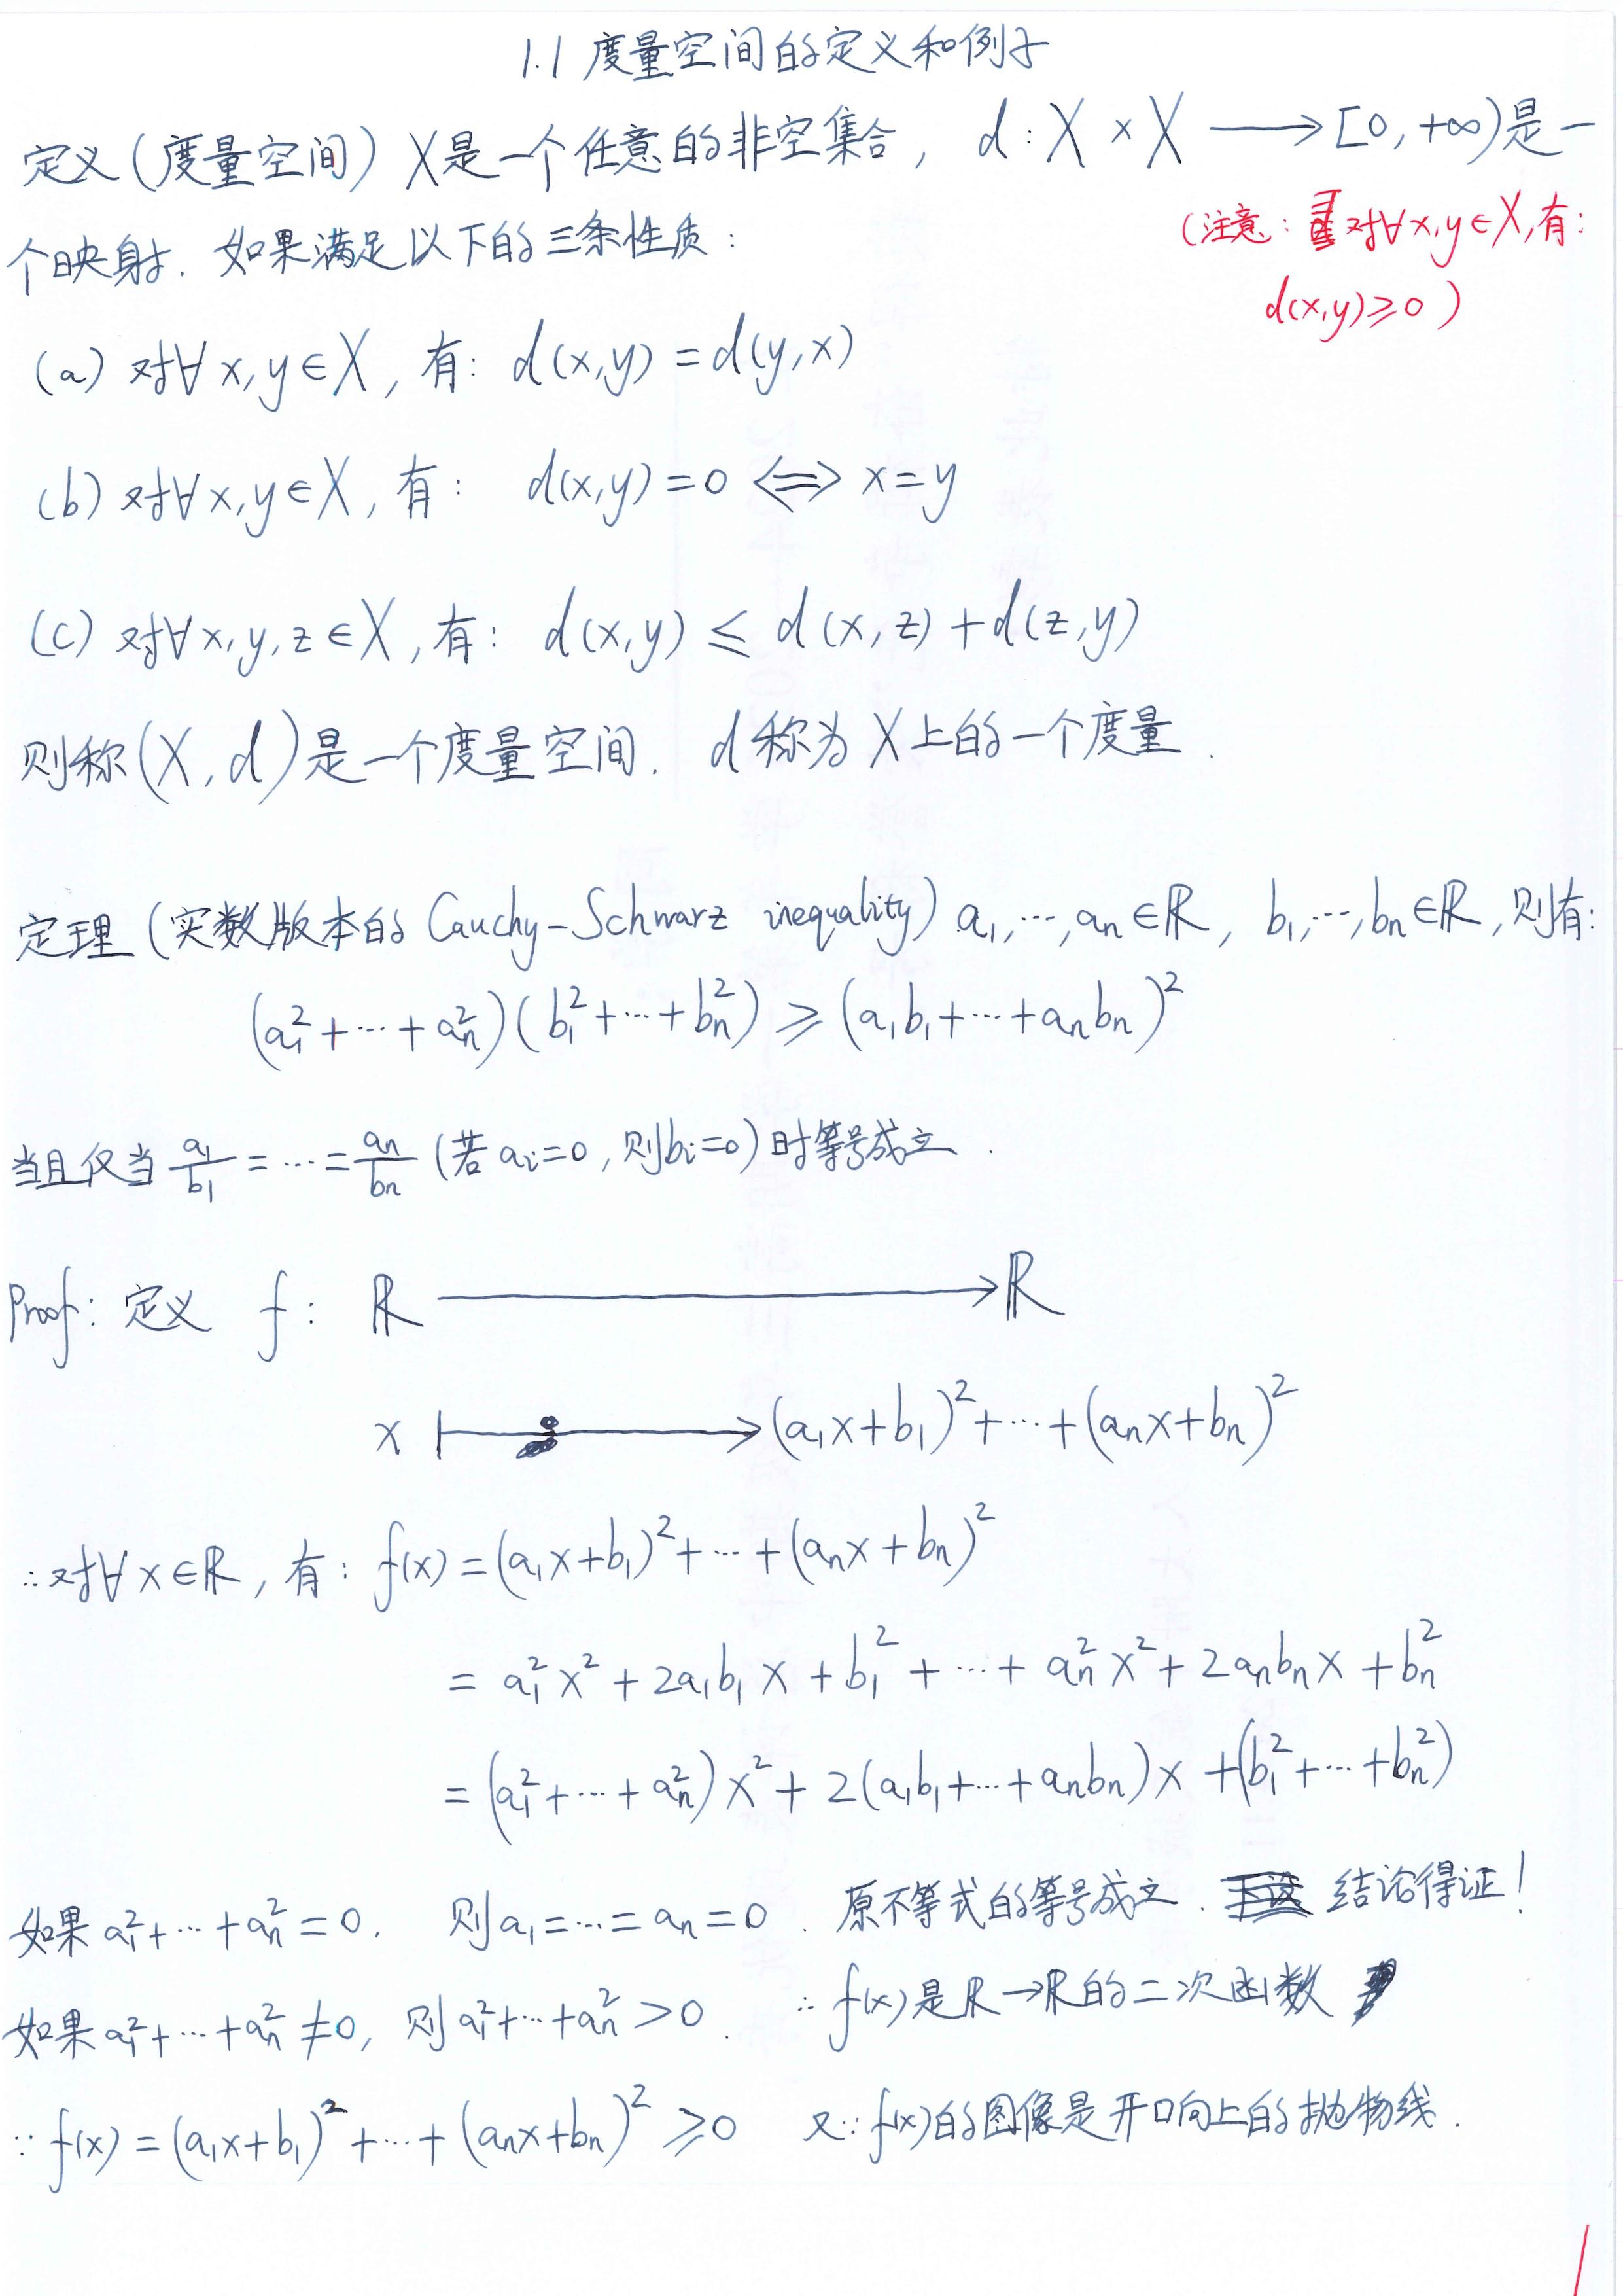 1.1 度量空间的定义和例子
定义(度量空间) X是一个任意的非空集合, d: X × X ⟶ [0, +∞)是一
个映射. 如果满足以下的三条性质:
(注意: 对∀x,y∈X,有:
d(x,y)≥0)
(a) 对∀x,y∈X, 有: d(x,y)=d(y,x)
(b) 对∀x,y∈X, 有: d(x,y)=0 ⟺ x=y
(c) 对∀x,y,z∈X, 有: d(x,y) ≤ d(x,z)+d(z,y)
则称(X,d)是一个度量空间. d称为X上的一个度量.
定理(实数版本的Cauchy-Schwarz inequality) a₁,⋯,aₙ∈ℝ, b₁,⋯,bₙ∈ℝ, 则有:
(a₁²+⋯+aₙ²)(b₁²+⋯+bₙ²) ≥ (a₁b₁+⋯+aₙbₙ)²
当且仅当 a₁/b₁ = ⋯ = aₙ/bₙ (若aᵢ=0, 则bᵢ=0)时等号成立.
Proof: 定义 f: ℝ ⟶ ℝ
x ⟼ (a₁x+b₁)²+⋯+(aₙx+bₙ)²
∴对∀x∈ℝ, 有: f(x)=(a₁x+b₁)²+⋯+(aₙx+bₙ)²
= a₁²x²+2a₁b₁x+b₁²+⋯+aₙ²x²+2aₙbₙx+bₙ²
= (a₁²+⋯+aₙ²)x²+2(a₁b₁+⋯+aₙbₙ)x+(b₁²+⋯+bₙ²)
如果a₁²+⋯+aₙ²=0, 则a₁=⋯=aₙ=0. 原不等式的等号成立. 结论得证!
如果a₁²+⋯+aₙ²≠0, 则a₁²+⋯+aₙ²>0. ∴f(x)是ℝ→ℝ的二次函数
∵f(x)=(a₁x+b₁)²+⋯+(aₙx+bₙ)²≥0 又∵f(x)的图像是开口向上的抛物线.